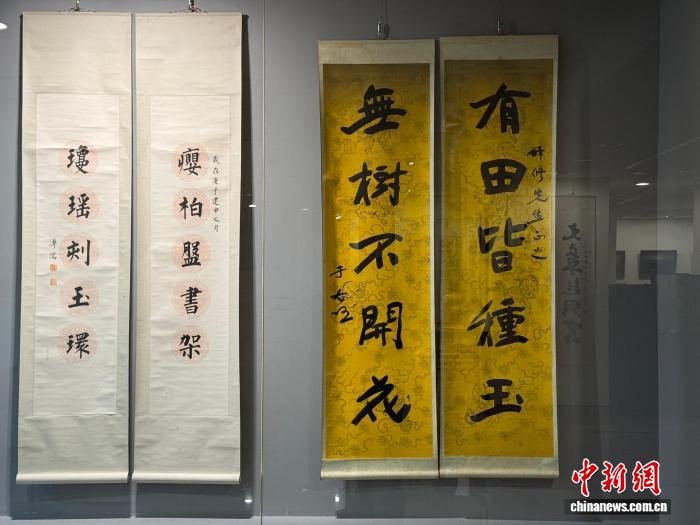 有田皆種玉
静修先生正之
無樹不開花
于右任
癭柏盤書架
歲在庚子建申之月
瓊瑶刻玉環
溥儒
中新网
chinanews.com